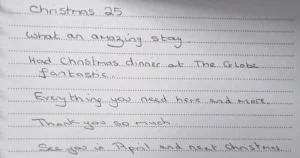 Christmas 25
What an amazing stay
Had Christmas dinner at The Globe
fantastic..
Everything you need here and more.
Thank you so much.
See you in April and next Christmas...